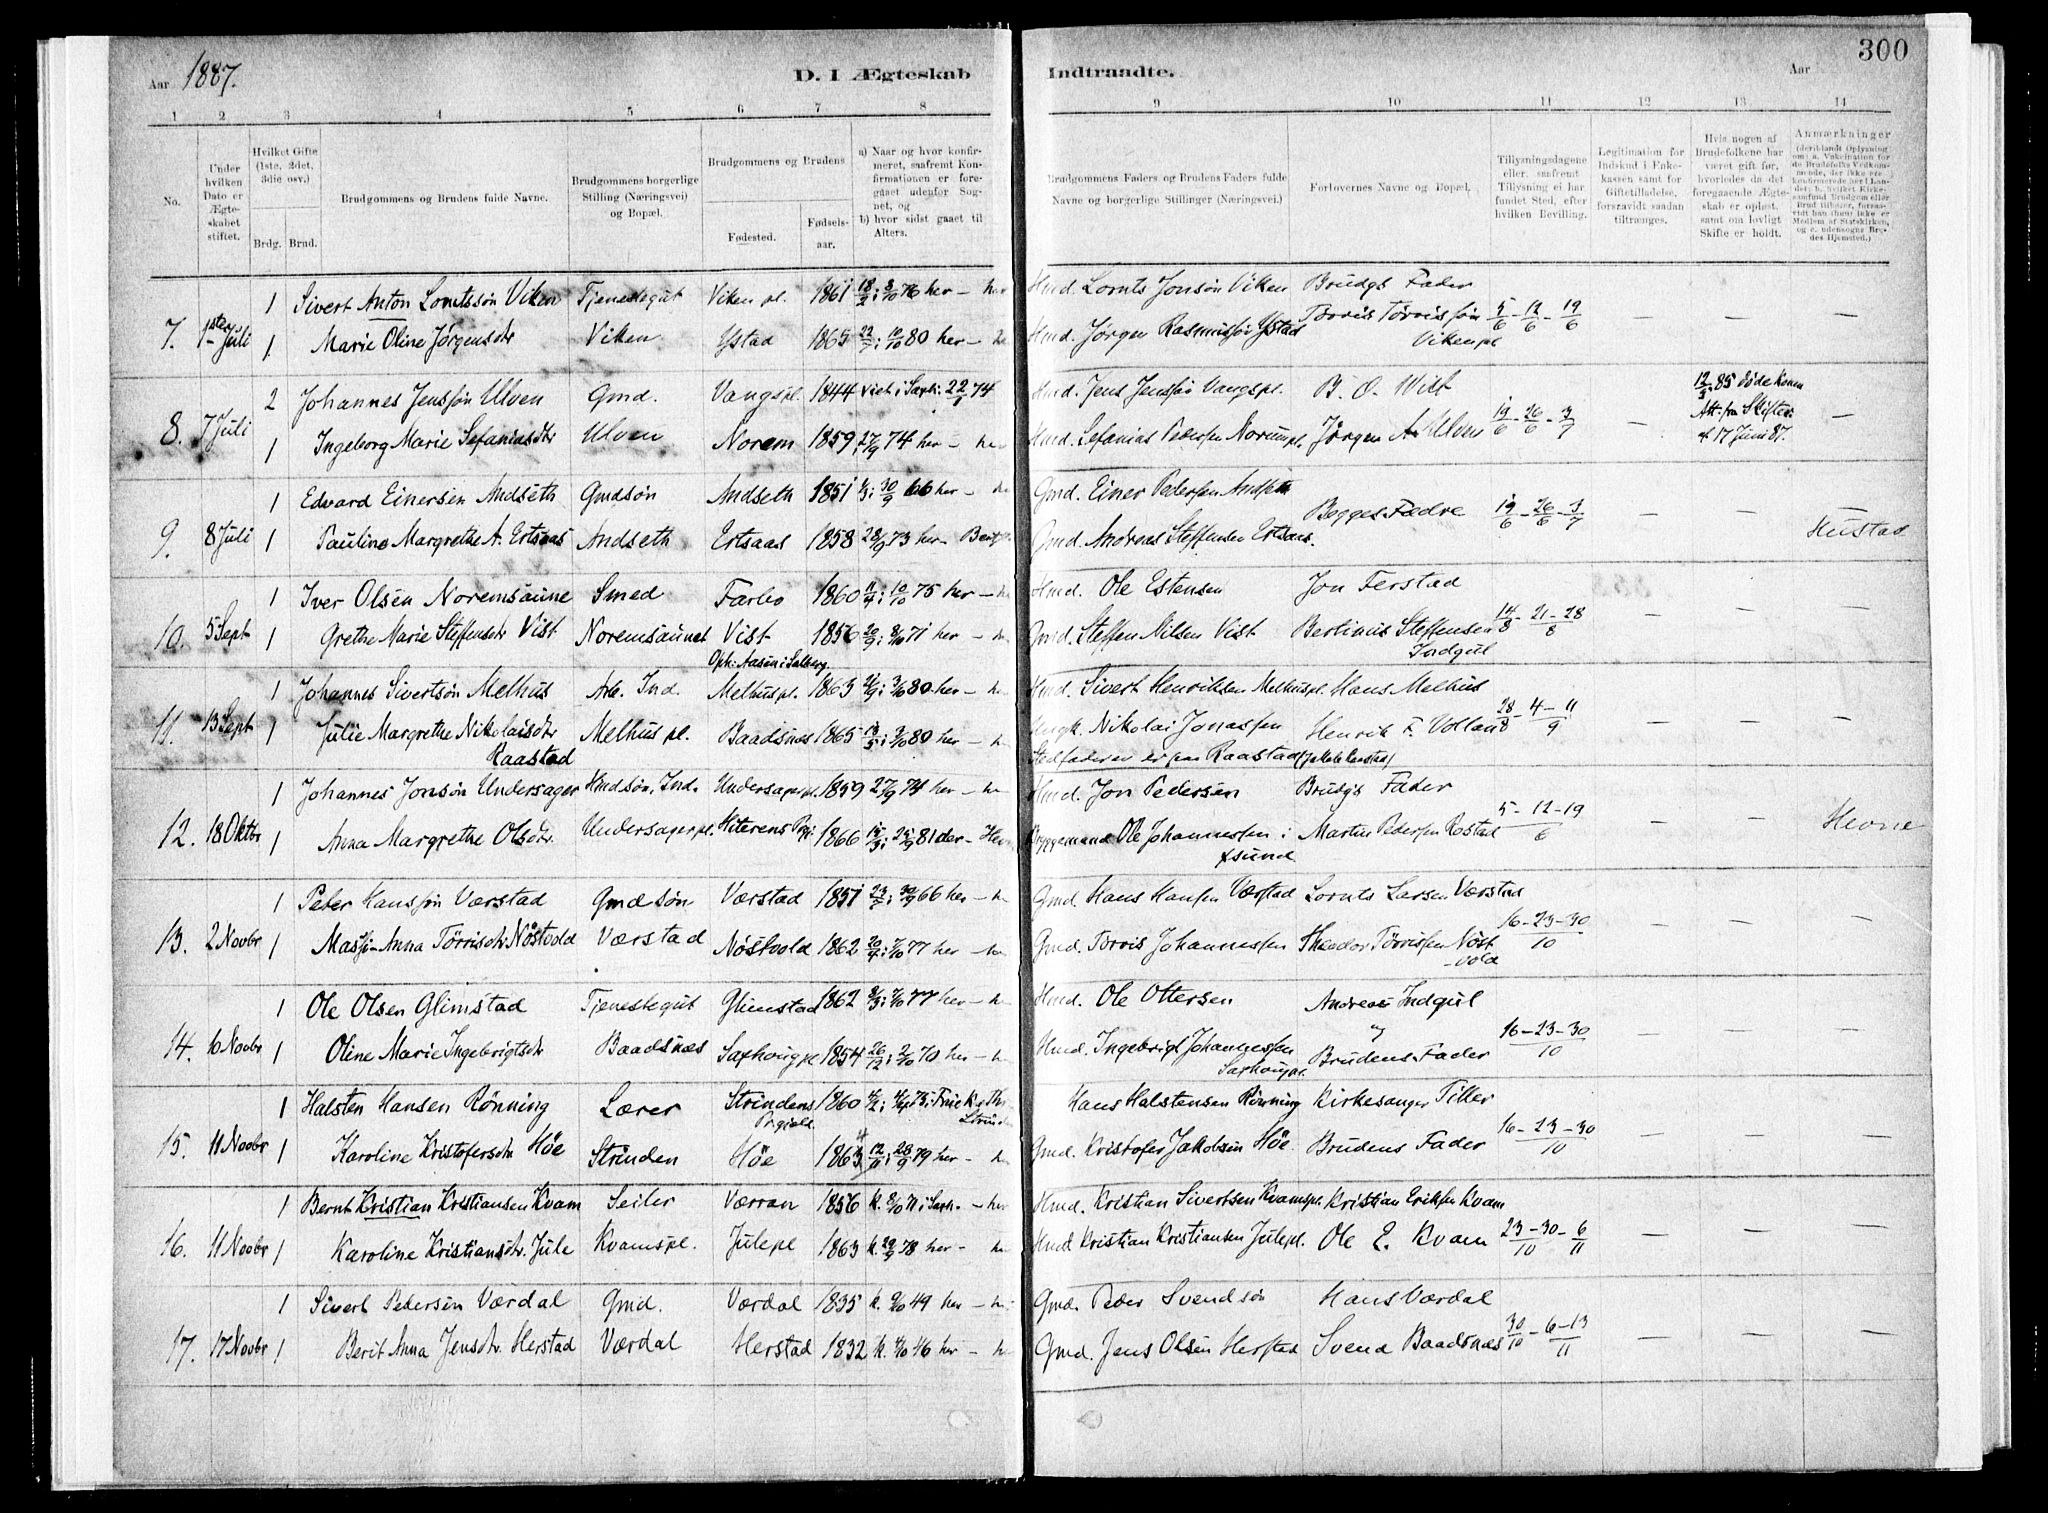 Aar 1887. D. I Ægteskab Indtraadte. Aar 300
1 2 3 4 5 6 7 8 9 10 11 12 13 14
No.
Under hvilken Dato er Ægteskabet stiftet.
Hvilket Gifte (1ste, 2det, 3die osv.)
Brdg. Brud.
Brudgommens og Brudens fulde Navne.
Brudgommens borgerlige Stilling (Næringsvei) og Bopæl.
Brudgommens og Brudens
Fødested. Fødselsaar.
a) Naar og hvor konfirmeret, saafremt Konfirmationen er foregaaet udenfor Sognet, og
b) hvor sidst gaaet til Alters.
Brudgommens Faders og Brudens Faders fulde Navne og borgerlige Stillinger (Næringsvei.)
Forlovernes Navne og Bopæl.
Tillysningsdagene eller, saafremt Tillysning ei har fundet Sted, efter hvilken Bevilling.
Legitimation for Indskud i Enkekassen samt for Giftetilladelse, forsaavidt saadan tiltrænges.
Hvis nogen af Brudefolkene har været gift før, hvorledes da det foregaaende Ægteskab er opløst, samt om lovligt Skifte er holdt.
Anmærkninger
1 Sivert Anton Lorntssøn Viken Tjenestegut Viken pl. 1861 18/2 i 8/10 76 her – her Hmd. Lornts Jonsøn Viken Brudgs Fader
7. 1ste Juli 1 Marie Oline Jørgensdtr Viken Ystad 1865 22/7 i 10/10 80 her – Hmd. Jørgen Rasmussøn Ystad Torris Torrissøn Viken pl 5/6 - 12/6 - 19/6 – – –
2 Johannes Jenssøn Ulven Gmd. Vangspl. 1844 74 Hmd. Jens Jenssøn Vangspl. B. O. Wist 12/3 85 døde konen
8. 7 Juli 1 Ingeborg Marie Sefaniasdtr Ulven Norem 1859 27/9 74 her – Hmd. Sefanias Pedersen Norempl. Jørgen A. Ulven 19/6 - 26/6 - 3/7 – Att. fra Skifter. af 17 Juni 87. –
1 Edvard Einersen Andseth Gmdsøn Andseth 1851 1/3 i 30/9 66 her – Gmd. Einer Pedersen Andseth
9. 8 Juli 1 Pauline Margrethe A. Ertsaas Andseth Ertsaas 1858 28/9 73 her – Gmd. Andreas Steffensen Ertsaas. Begges Fædre 19/6 - 26/6 - 3/7 – – – Hustad
1 Iver Olsen Noremsaune Smed Farbo 1860 11/4 i 10/10 75 her – Hmd. Ole Estensen Jon Ferstad
10. 5 Sept 1 Grethe Marie Steffensdtr Vist Noremsaunet Vist 1856 20/9 i 8/10 71 her – Gmd. Steffen Nilsen Vist Bertinus Steffensen Indgul 14/8 - 21 - 28/8 – – –
Oph: Aasen i Salberg.
1 Johannes Sivertsøn Melhus Arb. Ind. Melhuspl. 1863 3/10 80 her – Hmd. Sivert Henriksen Melhuspl. Hans Melhus
11. 13 Sept 1 Julie Margrethe Nikolaisdtr Raastad Melhus pl. Baadsnes 1865 3/10 80 her – Nikolai Jonassen Henrik F. Vollan 28/8 - 4 - 11/9 – – –
Stedfaderen er paa Raastad
1 Johannes Jonsøn Undersager Hmdsøn. Ind. Undersagerpl. 1859 27/9 74 her – Hmd. Jon Pedersen Brudgs Fader
12. 18 Oktbr 1 Anna Margrethe Olsdtr. Undersagerpl. Hiterens Prgj. 1866 81 der – Bryggemand Ole Johannessen i Xsund Martin Pedersen Rostad 5 - 12 - 19/6 Hevne
1 Peter Hanssøn Værstad Gmdsøn Værstad 1851 30/9 66 her – Gmd. Hans Hansen Værstad Lornts Larsen Værstad
13. 2 Novbr 1 Massi-Anna Törrisdtr Nöstvold Værstad Nöstvold 1862 20/4 i 7/10 77 her – Gmd. Torris Johannessen Theodor Törrissen Nöstvold 16 - 23 - 30/10 – – –
1 Ole Olsen Glimstad Tjenestegut Glimstad 1862 7/10 77 her – Hmd. Ole Ottersen Andreas Indgul
14. 10 Novbr 1 Oline Marie Ingebrigtsdtr Baadsnæs Saxhougpl 1854 26/12 i 2/10 70 her – Hmd. Ingebrigt Johannessen Saxhougpl. Brudens Fader 16 - 23 - 30/10 – – –
1 Halsten Hansen Rønning Lærer Strindens Prgjeld. 1860 Hans Halstensen Rønning Kirkesanger Tiller
15. 11 Novbr 1 Karoline Kristofersdtr Höe Strinden Höe 1863 12/11 i 28/9 79 her – Gmd. Kristofer Jakobsen Höe Brudens Fader 16 - 23 - 30/10 – – –
1 Bernt Kristian Kristiansen Kvam Seiler Værran 1856 k. 8/10 71 i Saxh. – her Hmd. Kristian Sivertsen Kvamspl. Kristian Eriksen Kvam
16. 11 Novbr 1 Karoline Kristiansdtr. Jule Kvamspl. Julepl 1863 k. 29/9 78 her – Hmd Kristian Kristiansen Julepl. Ole E. Kvam 23 - 30/10 - 6/11 – – –
1 Sivert Pedersen Værdal Gmd. Værdal 1835 k. 49 her – Gmd. Peder Svendsøn Hans Værdal
17. 17 Novbr 1 Berit Anna Jensdtr. Herstad Værdal Herstad 1832 k. 46 her – Gmd. Jens Olsen Herstad Svend Baadsnæs 30/10 - 6 - 13/11 – – –